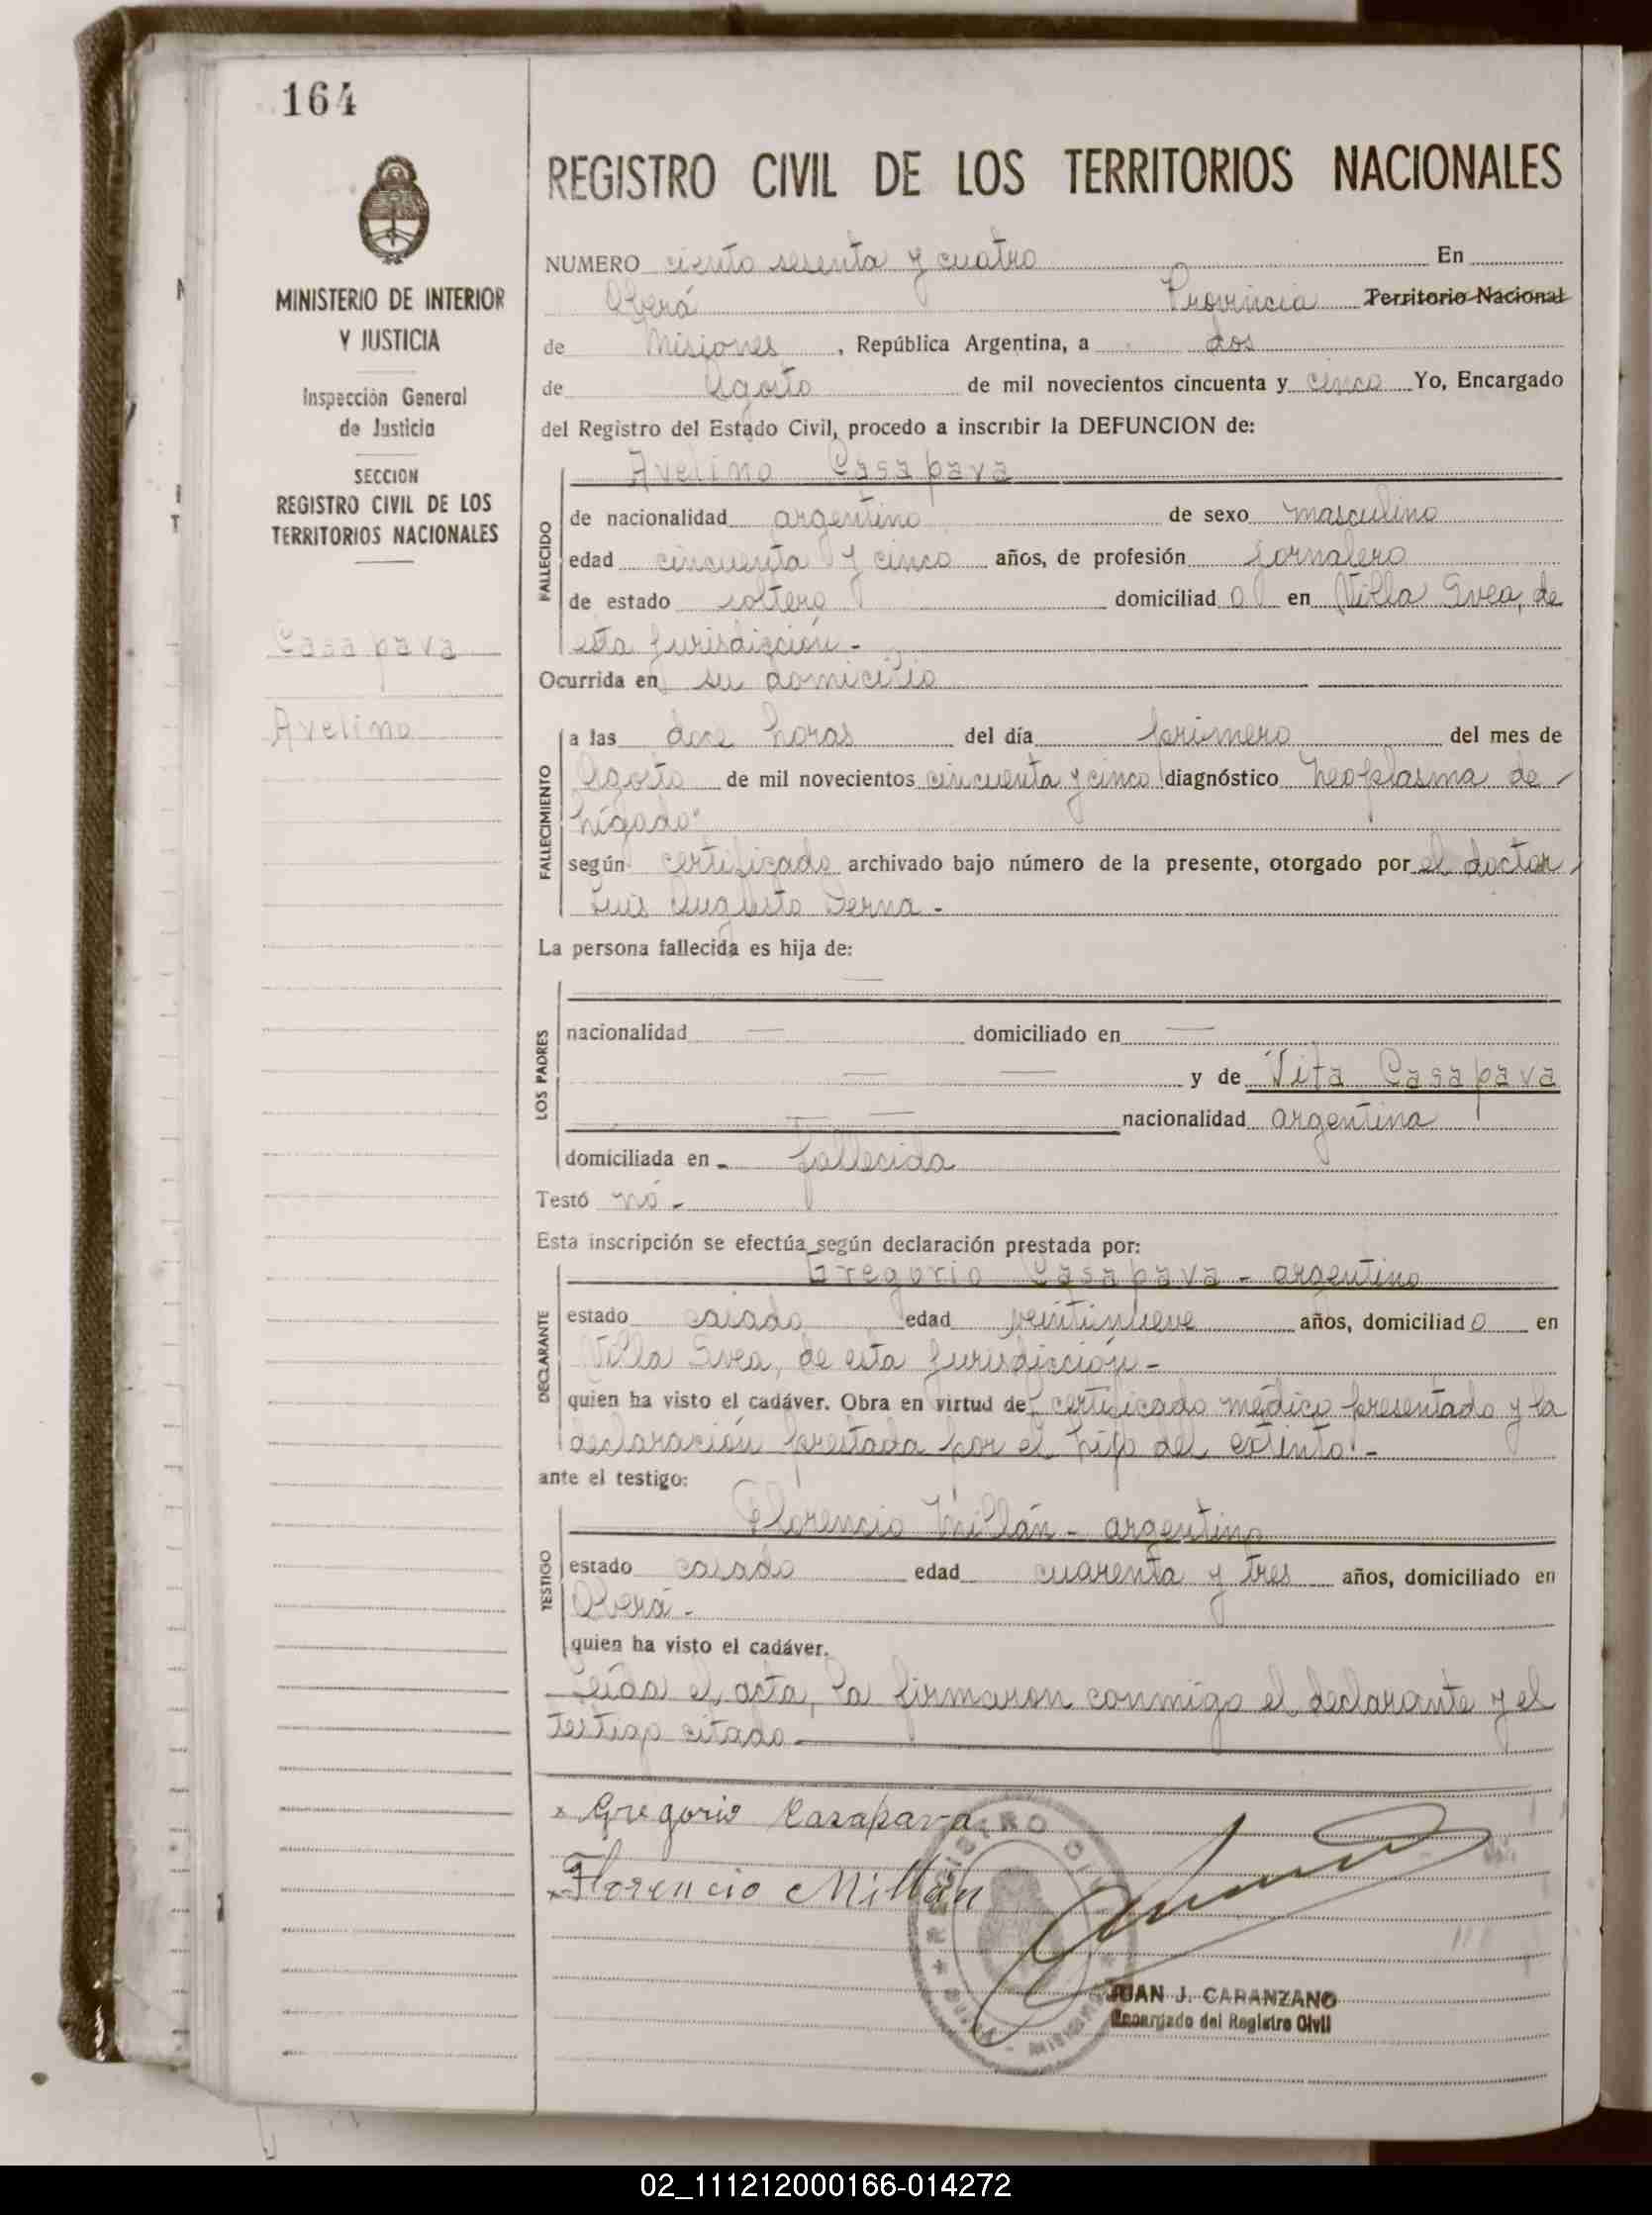 164
REGISTRO CIVIL DE LOS TERRITORIOS NACIONALES
MINISTERIO DE INTERIOR
Y JUSTICIA
Inspección General
de Justicia
SECCION
REGISTRO CIVIL DE LOS
TERRITORIOS NACIONALES
Casapava
Avelino
NUMERO ciento sesenta y cuatro En
Oberá Provincia Territorio Nacional
de Misiones, República Argentina, a dos
de Agosto de mil novecientos cincuenta y cinco Yo, Encargado
del Registro del Estado Civil, procedo a inscribir la DEFUNCION de:
Avelino Casapava
FALLECIDO
de nacionalidad argentino de sexo masculino
edad cincuenta y cinco años, de profesión jornalero
de estado soltero domiciliad o en Villa Svea, de
esta jurisdicción -
Ocurrida en su domicilio
FALLECIMIENTO
a las doce horas del día primero del mes de
Agosto de mil novecientos cincuenta y cinco diagnóstico neoplasma de
hígado"
según certificado archivado bajo número de la presente, otorgado por el doctor
Luis Augusto Derna -
La persona fallecida es hija de:
LOS PADRES
nacionalidad — domiciliado en —
— — y de Vita Casapava
— nacionalidad argentina
domiciliada en - fallecida
Testó nó -
Esta inscripción se efectúa según declaración prestada por:
Gregorio Casapava - argentino
DECLARANTE
estado casado edad veintinueve años, domiciliad o en
Villa Svea, de esta jurisdicción -
quien ha visto el cadáver. Obra en virtud de certificado médico presentado y la
declaración prestada por el hijo del extinto -
ante el testigo:
Florencio Millán - argentino
TESTIGO
estado casado edad cuarenta y tres años, domiciliado en
Oberá -
quien ha visto el cadáver.
Leída el acta, la firmaron conmigo el declarante y el
testigo citado
x Gregorio Casapava
x Florencio Millán
REGISTRO CIVIL
JUAN J. CARANZANO
Encargado del Registro Civil
02_111212000166-014272